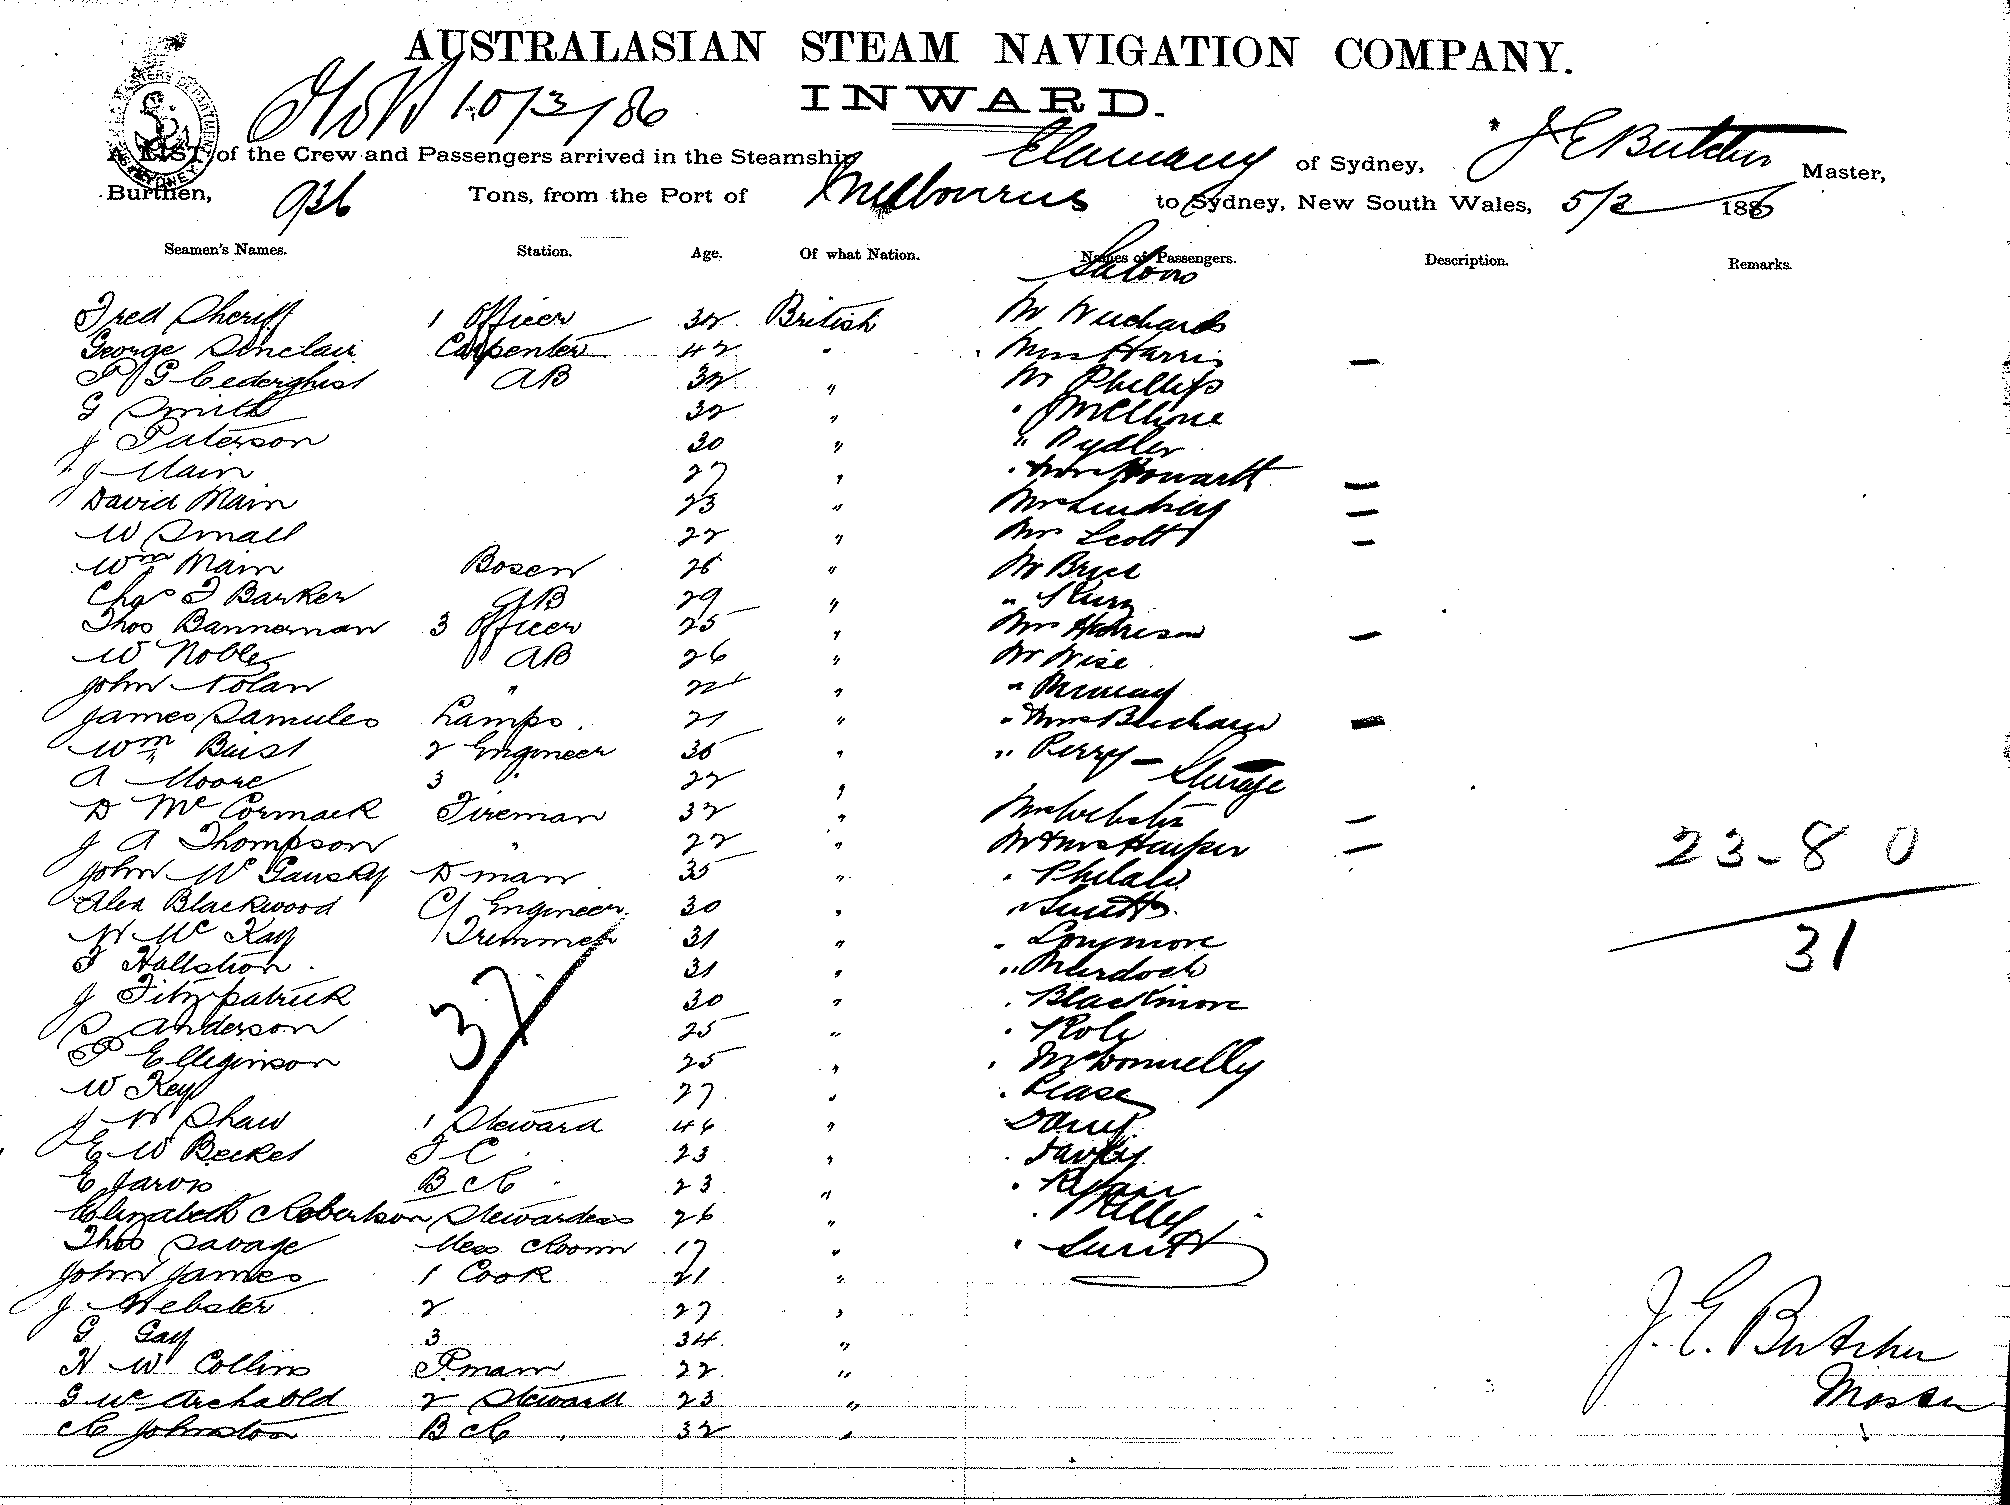 AUSTRALASIAN STEAM NAVIGATION COMPANY.
INWARD.
10/2/86
A LIST of the Crew and Passengers arrived in the Steamship Elamang of Sydney, J E Butcher Master,
Burthen, 936 Tons, from the Port of Melbourne to Sydney, New South Wales, 5/2 1886
Seamen's Names. Station. Age. Of what Nation. Names of Passengers. Description. Remarks.
Saloon
Fred Sheriff 1 Officer 32 British Mr
George Sinclair Carpenter 42 " Mrs Harris —
P G Cederghist AB 32 " Mr Phillips
G Smith 32 "
J Paterson 30 " "
J Main 27 " " Mrs Howarth —
David Main 23 " Mrs Lindsay —
W Small 22 " Mrs Scott —
Wm Main Bosen 26 " Mr Brice
Chas F Barker AB 29 " "
Thos Bannerman 3 Officer 25 " Mrs —
W Noble AB 26 " Mr Wise
John Nolan " 22 " " Murray
James Samules Lamps 21 " " Mrs —
Wm Buist 2 Engineer 36 " " Perry —
A Moore 3 " 22 " Steerage
D McCormack Fireman 32 " Mrs Webster —
J A Thompson " 22 " Mr & Mrs Harper —
John D man 35 " "
Alex Blackwood C/ Engineer 30 " " Smith
W McKay Trimmer 31 " " Longmore
F Hallstron 31 " " Murdoch
J Fitzpatrick 30 " " Blackmore
S Anderson 25 " "
P Elleginson 25 " " McDonnelly
W Key 27 " " Pease
J W Shaw 1 Steward 46 "
E W Becket F C 23 "
E Jarvis B C 23 " " Ryan
Elizabeth Robertson Stewardess 26 " " Kelley
Thos Savage Mess Room 17 " " Smith
John James 1 Cook 21 "
J Webster 2 27 "
G Gay 3 34 "
H W Collins P.man 22 "
G McArchabld 2 Steward 23 "
C Johnston B C " 32 "
37
23 - 8 0
31
J. E. Butcher
Master